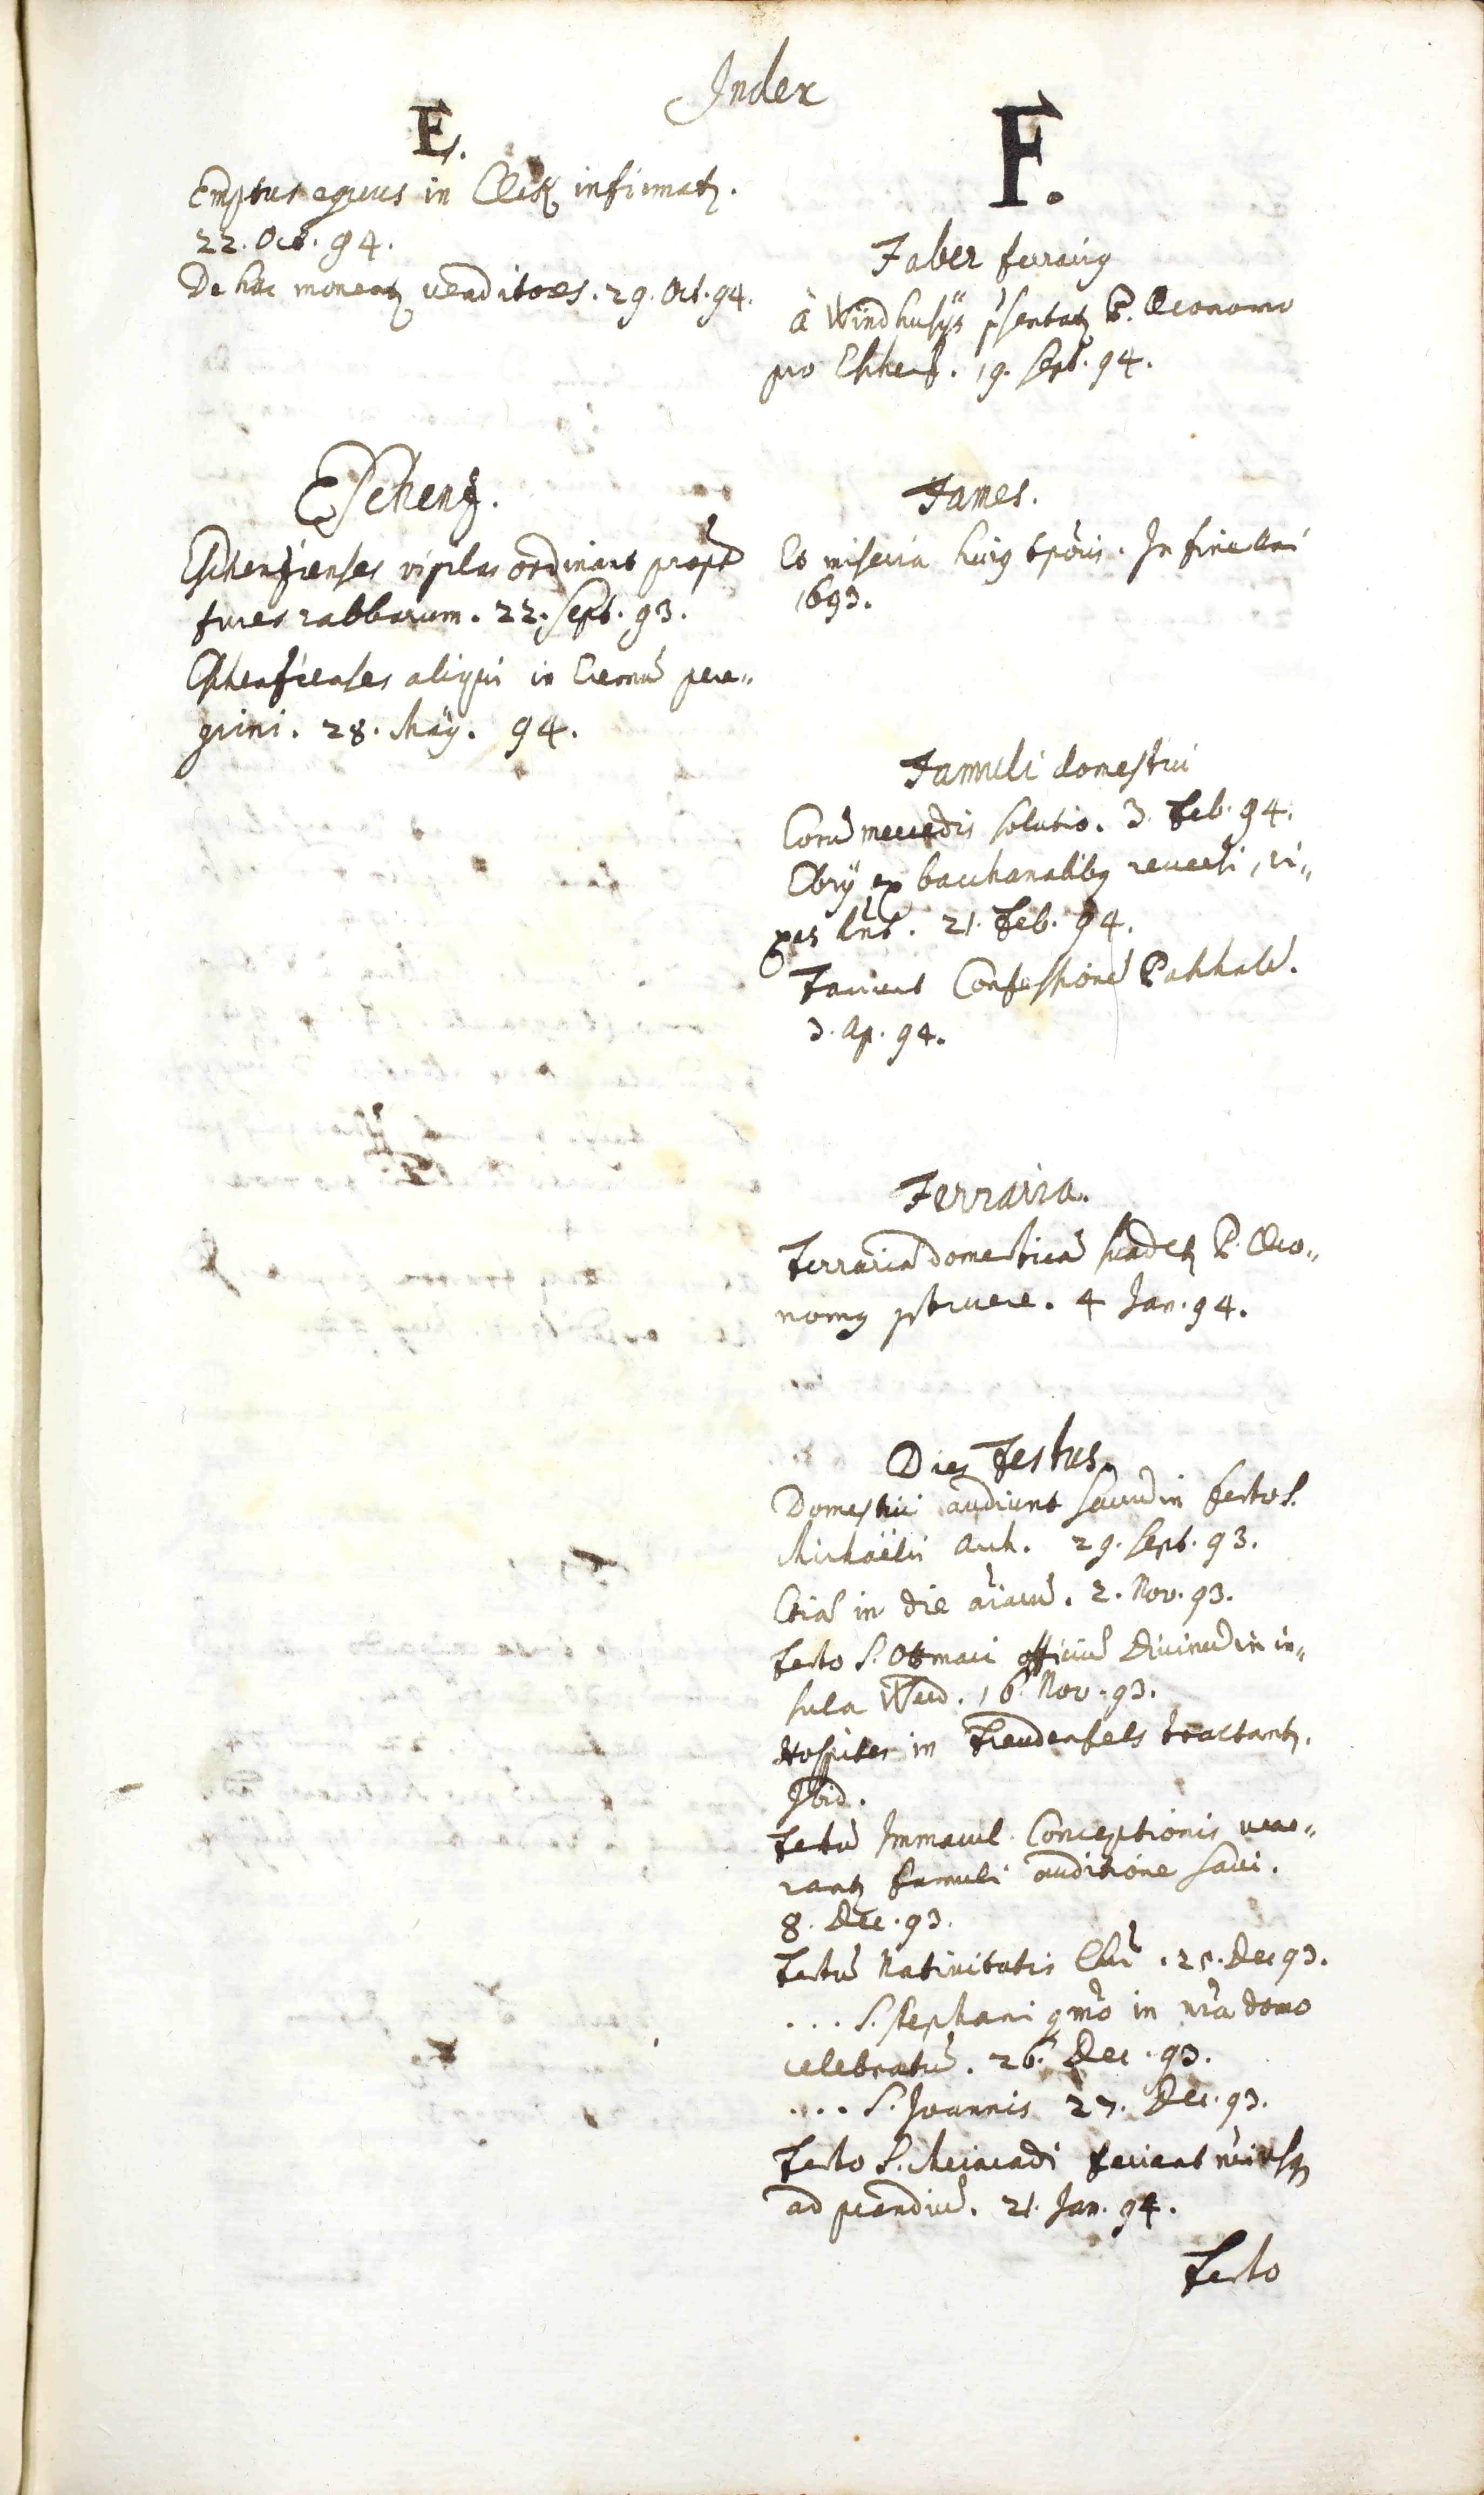 Index
E.
Emptus equus in infirmatꝫ.
22. Oct. 94.
De hac monentꝫ venditores. 29. Oct. 94.
Eschenz.
Eschenzienses vigilas ordinant propt̃
fures rabbarum. 22. Sept. 93.
Eschenzienses aliqui in Eremũ pere„
grini. 28. Maÿ. 94.
F.
Faber ferrariꝰ
à Windhusÿs p̃sentatꝫ P. Œconomo
pro Eschenz. 19. Sept. 94.
Fames.
Et miseria huiꝰ tp̃oris. In fine Añi
1693.
Famuli domestici
Eorũ mercedis solutio. 3. Feb. 94.
Ebrÿ ex bacchanalibꝰ reversi, ri„
xas hñt. 21. Feb. 94.
Faciunt Confessionẽ Paschalẽ.
3. Ap. 94.
Ferraria.
Ferrariã domesticã suadetꝫ P. Œco„
nomꝰ struere. 4 Jan. 94.
Dies Festus.
Domestici audiunt sacrũ in festo S.
Michaëlis Arch. 29. Sept. 93.
Etiã in die aĩarũ. 2. Nov. 93.
Festo S. Otmari officiũ Divinũ in in„
sula Werd. 16. Nov. 93.
Hospites in Freudenfels tractantꝫ.
Ibid.
Festũ Immacul. Conceptionis vene„
rantꝫ famuli auditione sacri.
8. Dec. 93.
Festũ Nativitatis Chr̃i. 25. Dec 93.
... S. Stephani qmõ in nr̃a domo
celebratũ. 26. Dec. 93.
.... S. Joannis 27. Dec. 93.
Festo S. Meinradi feriant nr̃i usqꝫ
ad prandiũ. 21. Jan. 94.
Festo